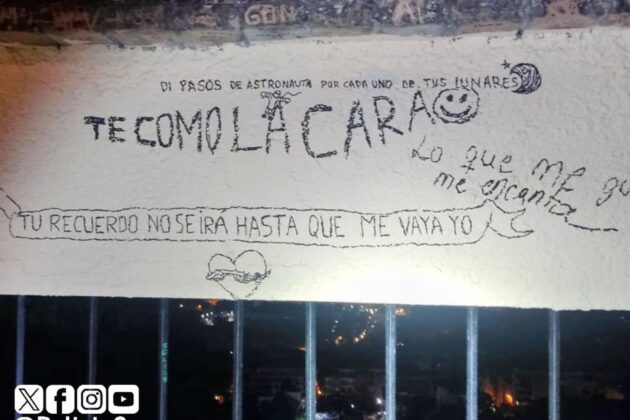 DI PASOS DE ASTRONAUTA POR CADA UNO DE TUS LUNARES
TE COMO LA CARA
LO QUE ME
me encanta
TU RECUERDO NO SE IRÁ HASTA QUE ME VAYA YO